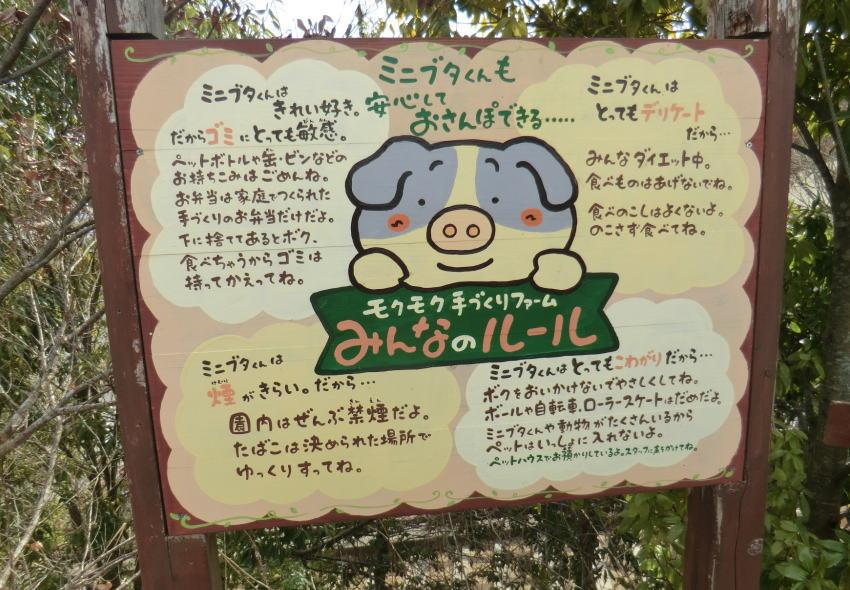 ミニブタくんも
安心して
おさんぽできる……
ミニブタくんは
きれい好き。
だからゴミにとっても敏感。
ペットボトルや缶・ビンなどの
お持ちこみはごめんね。
お弁当は家庭でつくられた
手づくりのお弁当だけだよ。
下に捨ててあるとボク、
食べちゃうからゴミは
持ってかえってね。
ミニブタくんは
とってもデリケート
だから…
みんなダイエット中。
食べものはあげないでね。
食べのこしはよくないよ。
のこさず食べてね。
モクモク手づくりファーム
みんなのルール
ミニブタくんは
煙がきらい。だから…
けむり
園内はぜんぶ禁煙だよ。
たばこは決められた場所で
ゆっくりすってね。
ミニブタくんはとってもこわがりだから…
ボクをおいかけないでやさしくしてね。
ボールや自転車、ローラースケートはだめだよ。
ミニブタくんや動物がたくさんいるから
ペットはいっしょに入れないよ。
ペットハウスでお預かりしているよ。スタッフに声かけてね。